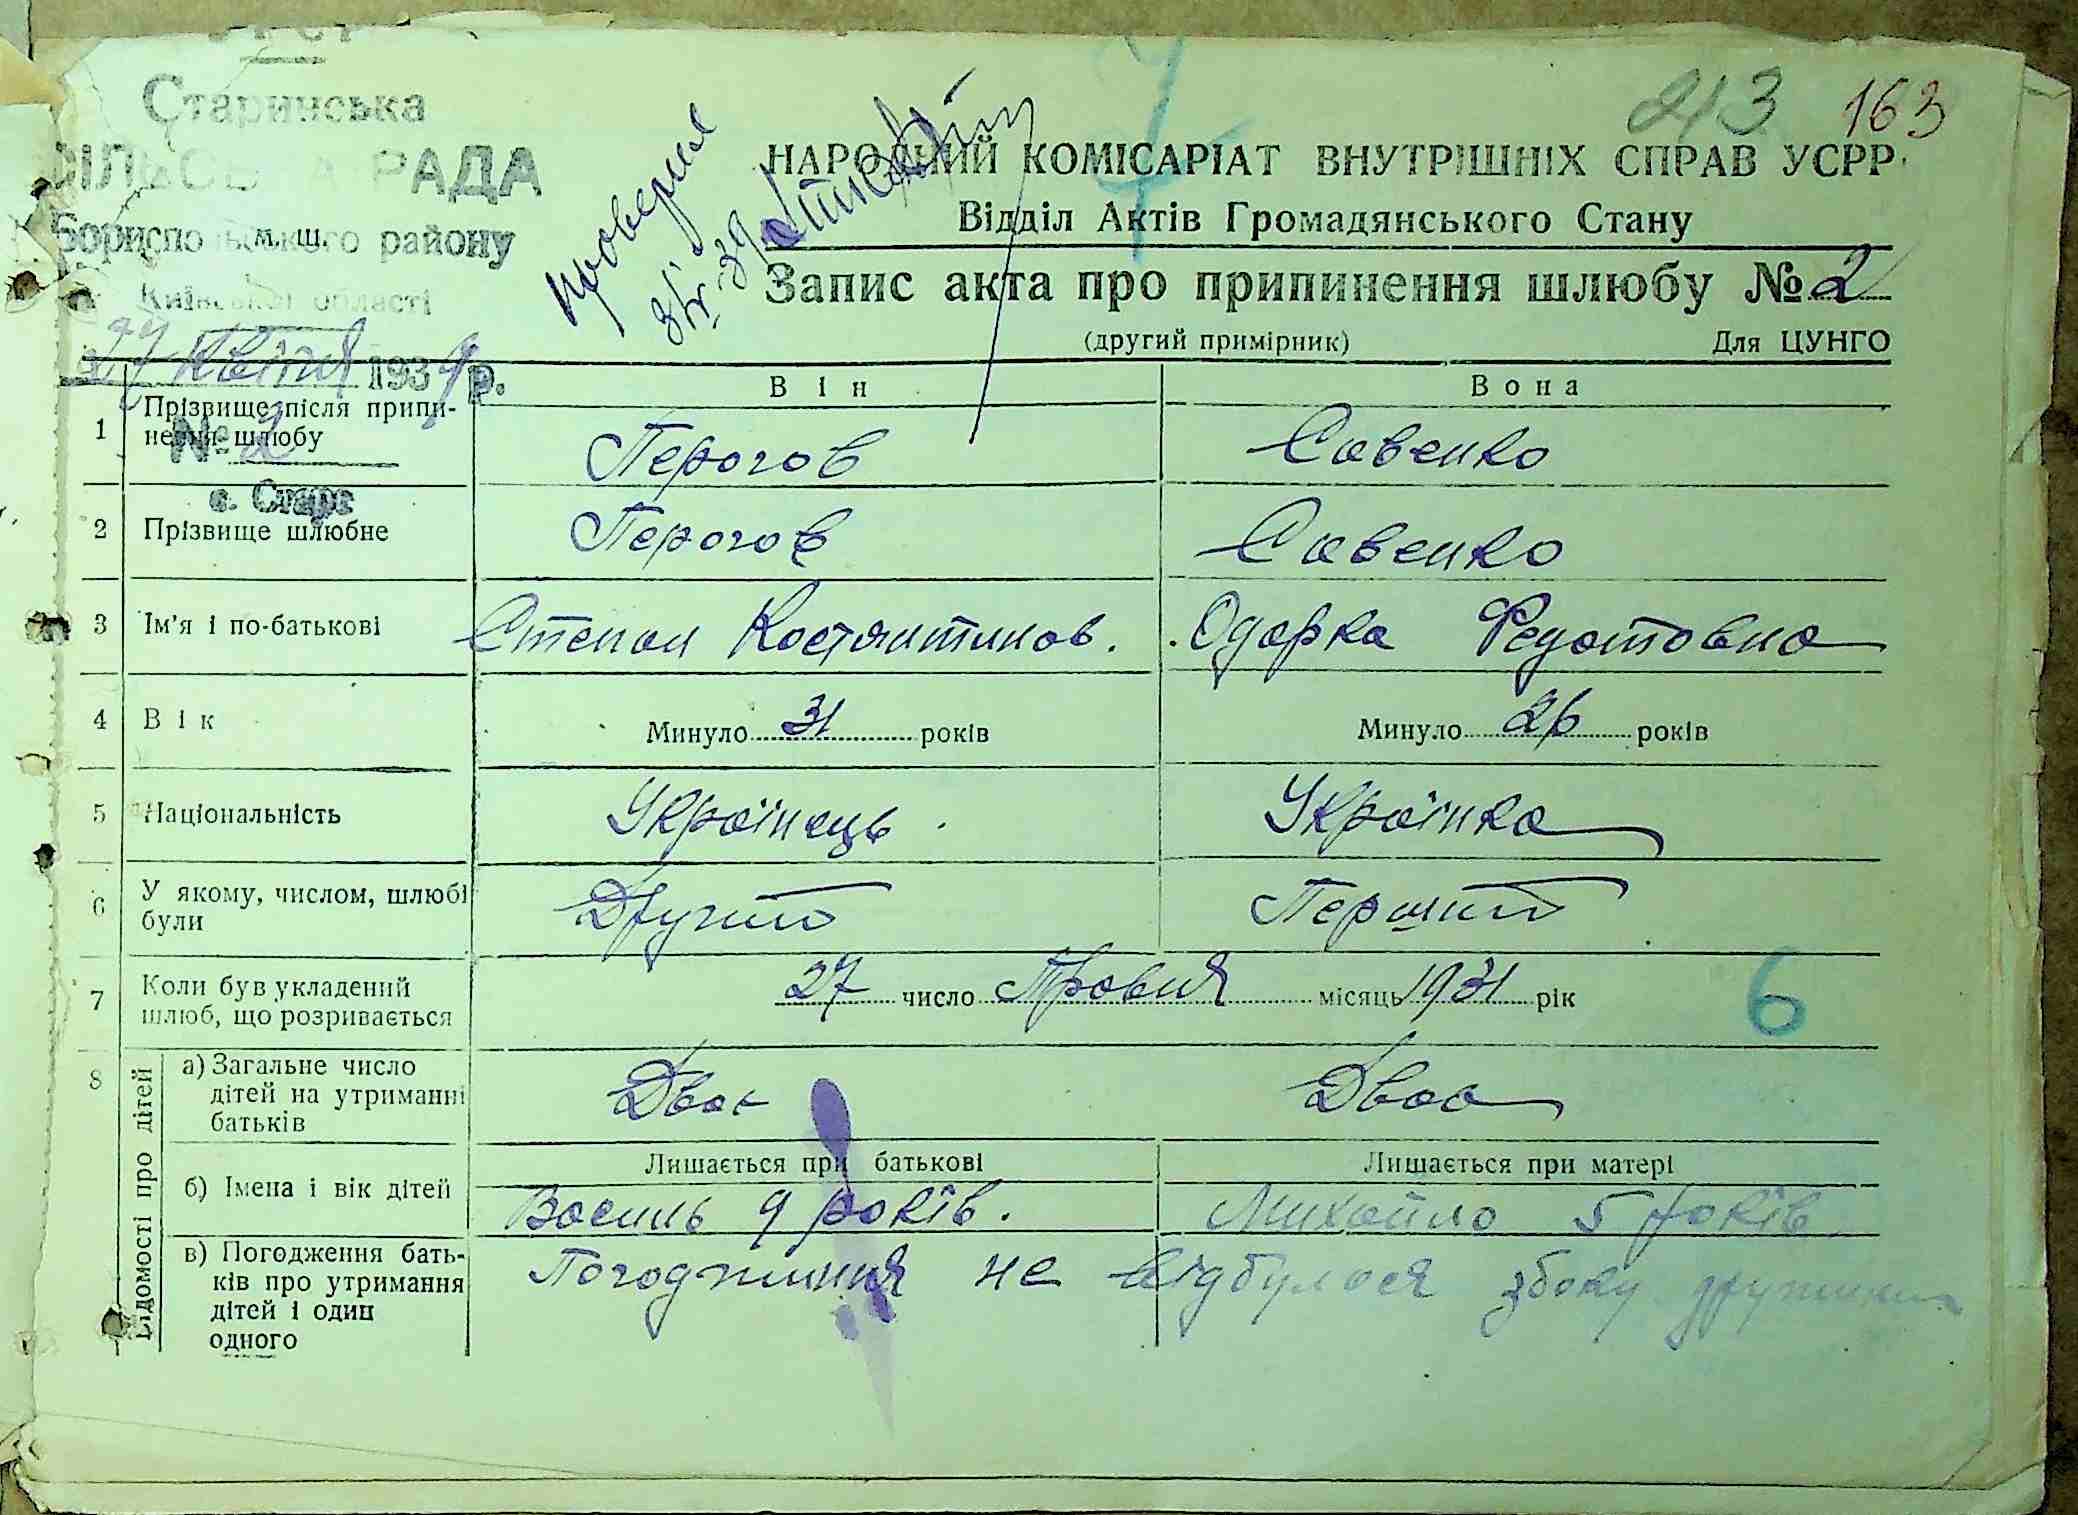 УСРР
Старинська
СІЛЬСЬКА РАДА
Бориспольського району
м. ш.
Київської області
27 квітня 1939 р.
№ 2
с. Старе
проверил
213 163
НАРОДНИЙ КОМІСАРІАТ ВНУТРІШНІХ СПРАВ УСРР
Відділ Актів Громадянського Стану
Запис акта про припинення шлюбу № 2
(другий примірник) Для ЦУНГО
Він Вона
1 Прізвище після припи-
нення шлюбу Перогов Савенко
2 Прізвище шлюбне Перогов Савенко
3 Ім'я і по-батькові Степан Костянтинов. Одарка Федотовна
4 Вік Минуло 31 років Минуло 26 років
5 Національність Українець Українка
6 У якому, числом, шлюбі
були Другий Перший
7 Коли був укладений
шлюб, що розривається 27 число Травня місяць 1931 рік
6
8 Відомості про дітей
а) Загальне число
дітей на утриманні
батьків Двое Двое
Лишається при батькові Лишається при матері
б) Імена і вік дітей Василь 9 років. Михайло 5 років
в) Погодження бать-
ків про утримання
дітей і один
одного Погодження не відбулося збоку дружини